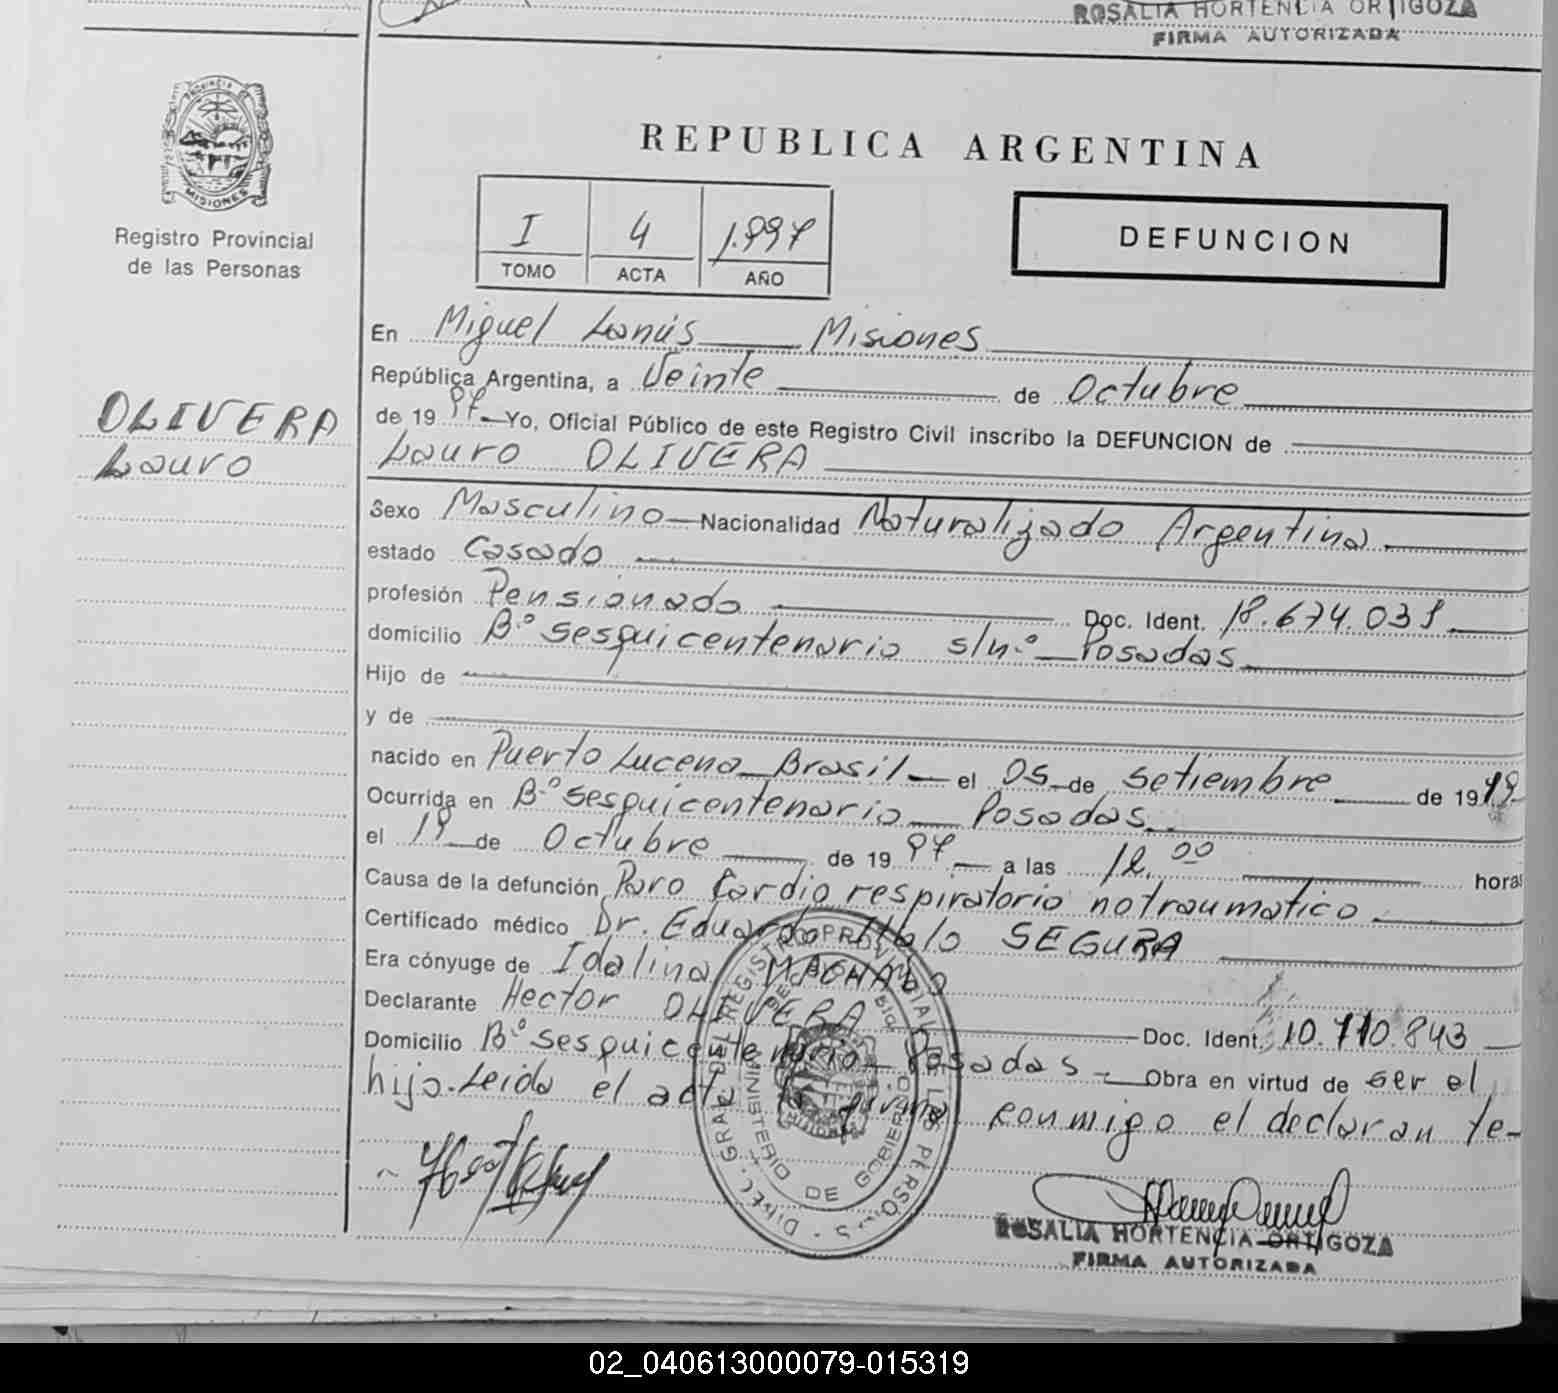 ROSALIA HORTENCIA ORTIGOZA
FIRMA AUTORIZADA
PROVINCIA DE
MISIONES
Registro Provincial
de las Personas
REPUBLICA ARGENTINA
I 4 1.997
TOMO ACTA AÑO
DEFUNCION
En Miguel Lanús Misiones
República Argentina, a Veinte de Octubre
de 19 97 Yo, Oficial Público de este Registro Civil inscribo la DEFUNCION de
Lauro OLIVERA
OLIVERA
Lauro
Sexo Masculino Nacionalidad Naturalizado Argentina
estado Casado
profesión Pensionado Doc. Ident. 18.674.031
domicilio B.º Sesquicentenario s/n.º Posadas
Hijo de
y de
nacido en Puerto Lucena Brasil el 05 de Setiembre de 19 19
Ocurrida en B.º Sesquicentenario Posadas
el 19 de Octubre de 19 97 a las 12.00 horas
Causa de la defunción Paro Cardio respiratorio no traumatico
Certificado médico Dr. Eduardo Italo SEGURA
Era cónyuge de Idalina MACHADO
Declarante Hector OLIVERA Doc. Ident. 10.710.843
Domicilio Bº Sesquicentenario Posadas Obra en virtud de ser el
hijo. Leida el acta la firma conmigo el declarante-
DIREC. GRAL. DEL REGISTRO PROVINCIAL DE LAS PERSONAS
MINISTERIO DE GOBIERNO
ROSALIA HORTENCIA ORTIGOZA
FIRMA AUTORIZADA
02_040613000079-015319